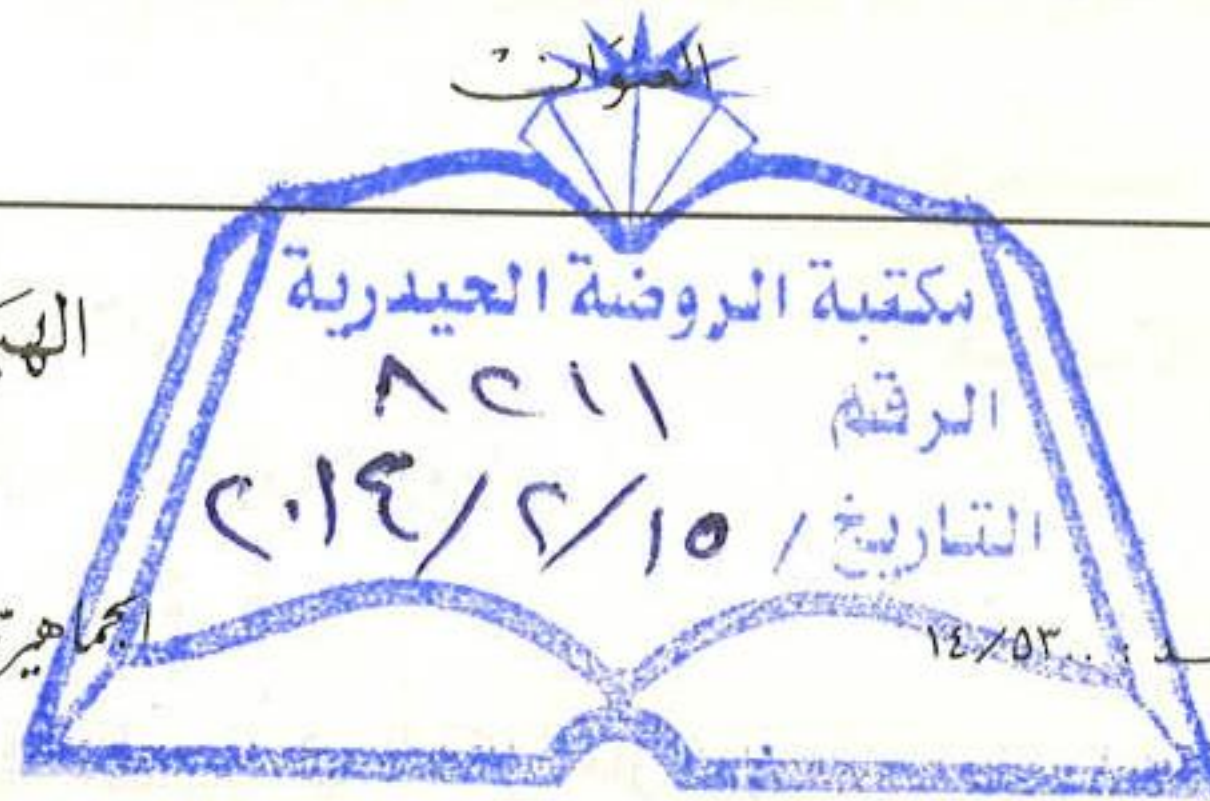 العنوان
مكتبة الروضة الحيدرية
الرقم ٨٢١١
التاريخ / ١٥/٢/٢٠١٤
١٤/٥٣...